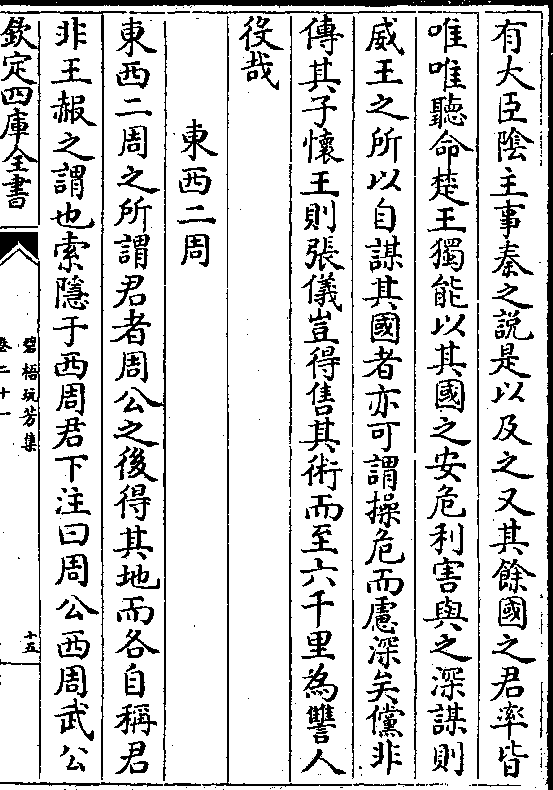 有大臣陰主事秦之說是以及之又其餘國之君率皆
唯唯聽命楚王獨能以其國之安危利害與之深謀則
威王之所以自謀其國者亦可謂操危而慮深矣儻非
傳其子懷王則張儀豈得售其術而至六千里為讐人
役哉
東西二周
東西二周之所謂君者周公之後得其地而各自稱君
非王赧之謂也索隱于西周君下注曰周公西周武公
欽定四庫全書
碧梧玩芳集
卷二十一
十五